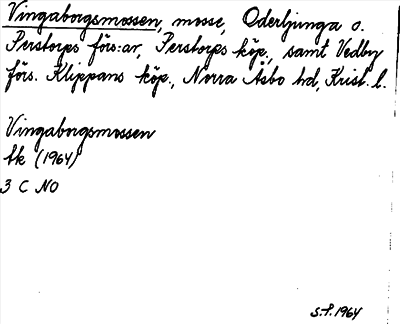 Vingaborgsmossen, mosse, Oderljunga o.
Perstorps förs:ar, Perstorps köp., samt Vedby
förs. Klippans köp., Norra Åsbo hd, Krist. l.
Vingaborgsmossen
Ek (1964)
3 C NO
S.-P. 1964